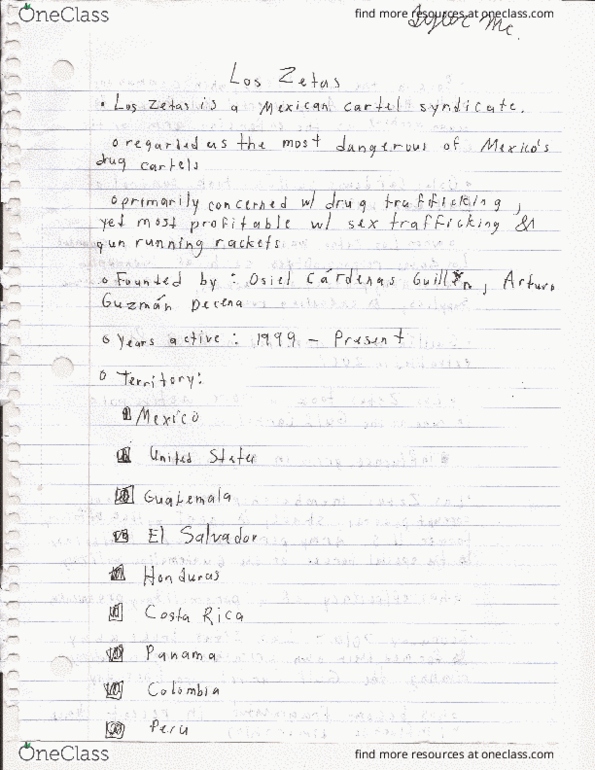 OneClass
find more resources at oneclass.com
Los Zetas
• Los Zetas is a Mexican cartel syndicate.
o regarded as the most dangerous of Mexico's
drug cartels
o primarily concerned w/ drug trafficking,
yet most profitable w/ sex trafficking &
gun running rackets.
o Founded by : Osiel Cárdenas Guillen, Arturo
Guzmán Decena
o Years active : 1999 - Present
o Territory:
Mexico
United States
Guatemala
El Salvador
Honduras
Costa Rica
Panama
Colombia
Peru
OneClass
find more resources at oneclass.com